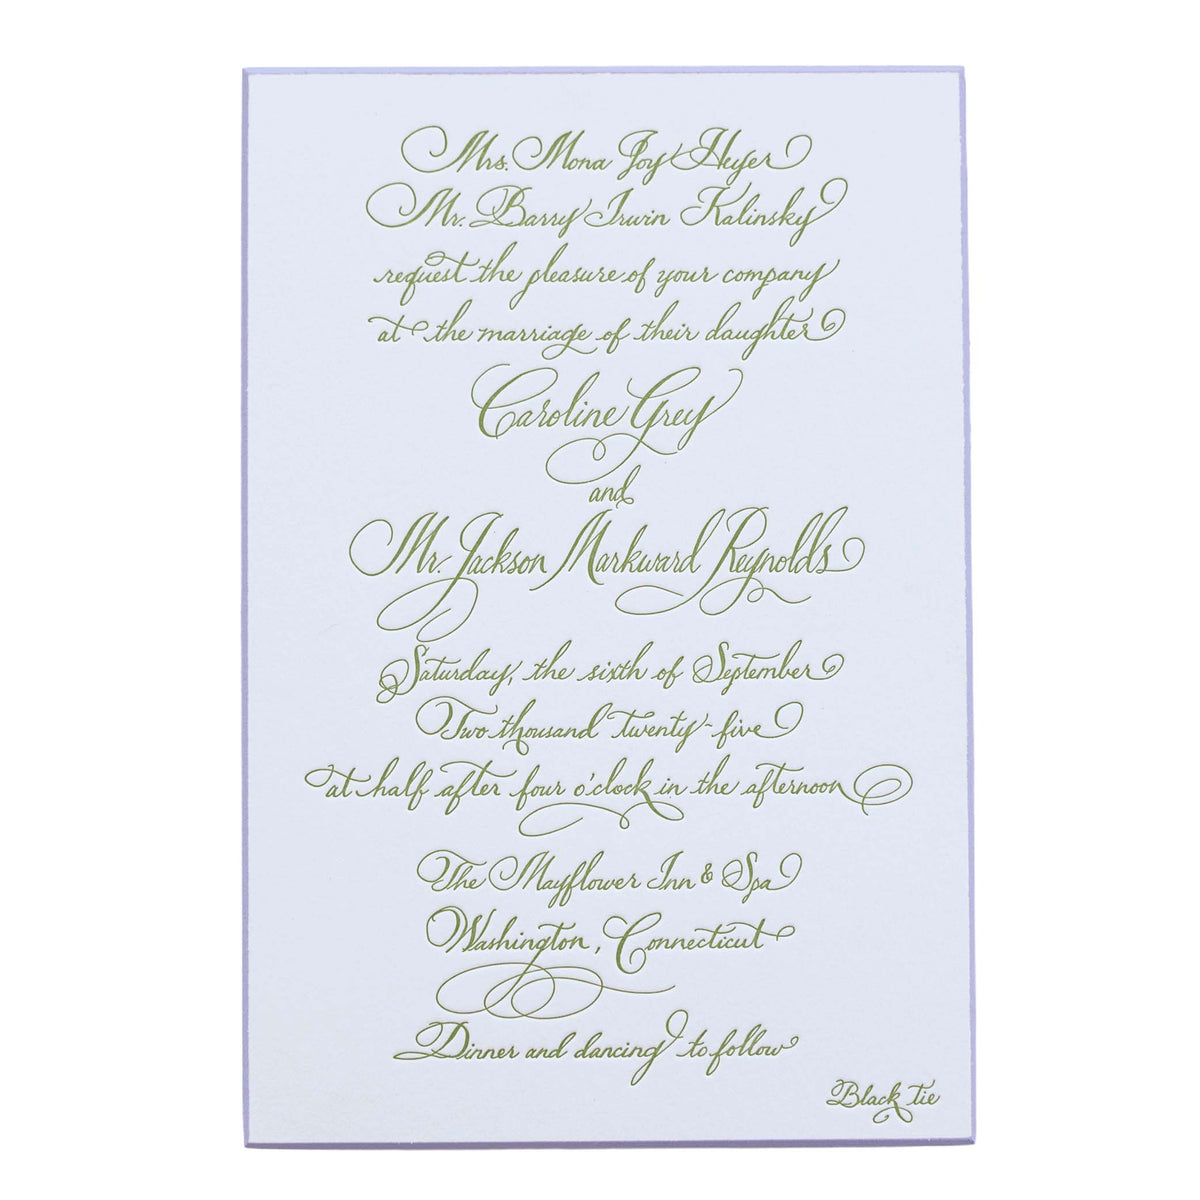 Mrs. Mona Joy Heyer
Mr. Barry Irwin Kalinsky
request the pleasure of your company
at the marriage of their daughter
Caroline Grey
and
Mr. Jackson Markward Reynolds
Saturday, the sixth of September
Two thousand twenty-five
at half after four o'clock in the afternoon
The Mayflower Inn & Spa
Washington, Connecticut
Dinner and dancing to follow
Black tie